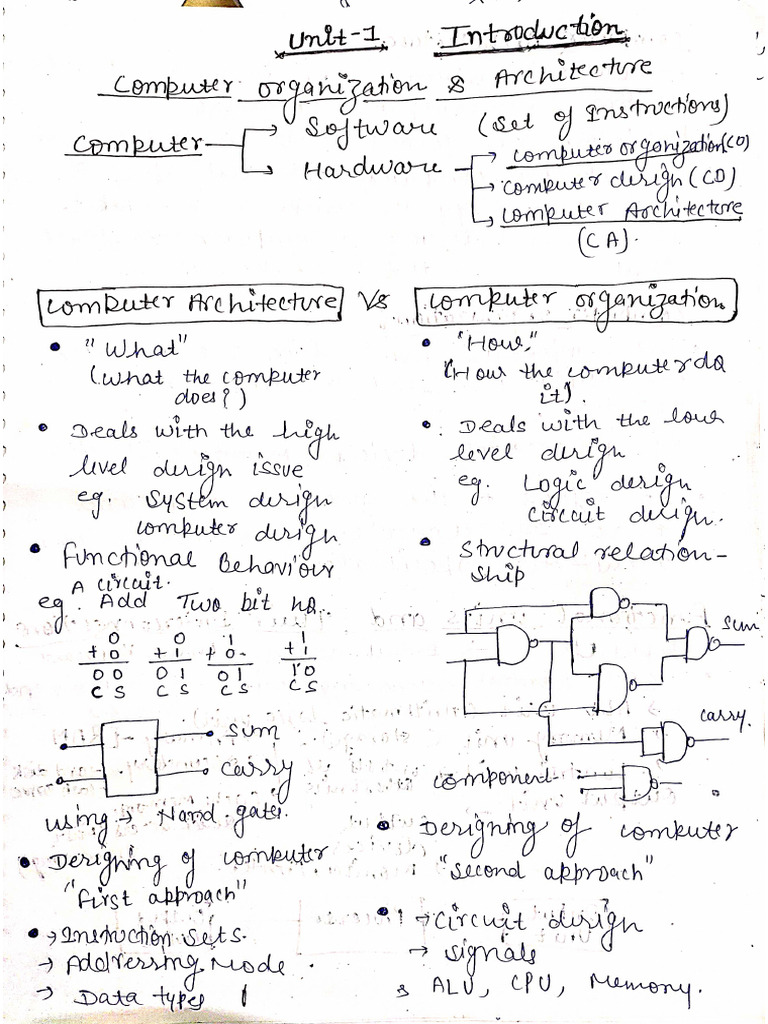 Unit-1 Introduction
Computer organization & Architecture
Computer → Software (Set of Instructions)
→ Hardware → Computer organization (CO)
→ Computer design (CD)
→ Computer Architecture
(CA).
Computer Architecture Vs Computer organization
• "What"
(What the computer
does?)
• Deals with the high
level design issue
eg. System design
computer design
• Functional Behaviour
A circuit.
eg. Add Two bit no..
0 0 1 1
+0 +1 +0. +1
00 01 01 10
C S C S C S C S
Sum
Carry
using → Nand gates.
• Designing of computer
"first approach"
• → Instruction sets.
→ Addressing Mode.
→ Data types
• "How"
(How the computer do
it).
• Deals with the low
level design
eg. Logic design
Circuit design.
• Structural relation-
ship
Sum
Carry.
component
• Designing of computer
"second approach"
• → Circuit design
→ Signals
ALU, CPU, Memory.